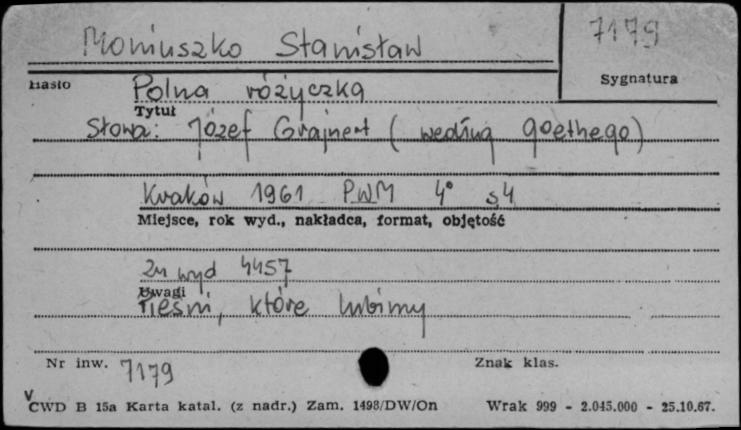 Moniuszko Stanisław 7179
Hasło Polna różyczka Sygnatura
Tytuł
Słowa: Józef Grajnert (według goethego)
Kraków 1961 PWM 4° s4
Miejsce, rok wyd., nakładca, format, objętość
zn wyd 4457
Uwagi
Pieśni, które lubimy
Nr inw. 7179 Znak klas.
CWD B 15a Karta katal. (z nadr.) Zam. 1498/DW/On Wrak 999 - 2.045.000 - 25.10.67.